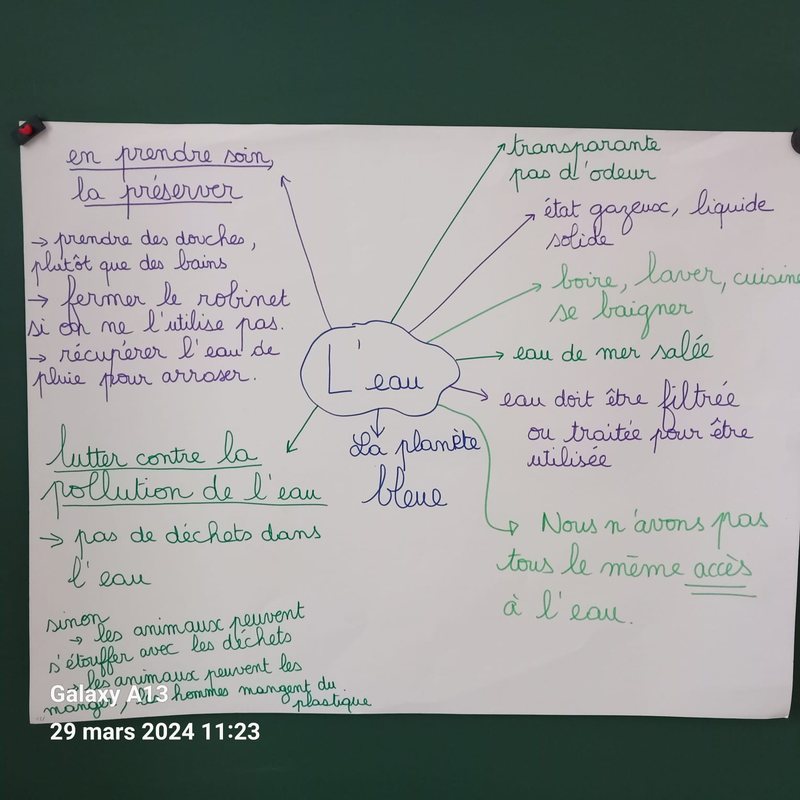 en prendre soin,
la préserver
→ prendre des douches,
plutôt que des bains
→ fermer le robinet
si on ne l'utilise pas.
→ récupérer l'eau de
pluie pour arroser.
L'eau
transparante
pas d'odeur
état gazeux, liquide
solide
boire, laver, cuisine
se baigner
eau de mer salée
eau doit être filtrée
ou traitée pour être
utilisée
Nous n'avons pas
tous le même accès
à l'eau.
La planète
bleue
lutter contre la
pollution de l'eau
→ pas de déchets dans
l'eau
sinon
→ les animaux peuvent
s'étouffer avec les déchets
→ les animaux peuvent les
manger, les hommes mangent du
plastique
Galaxy A13
29 mars 2024 11:23